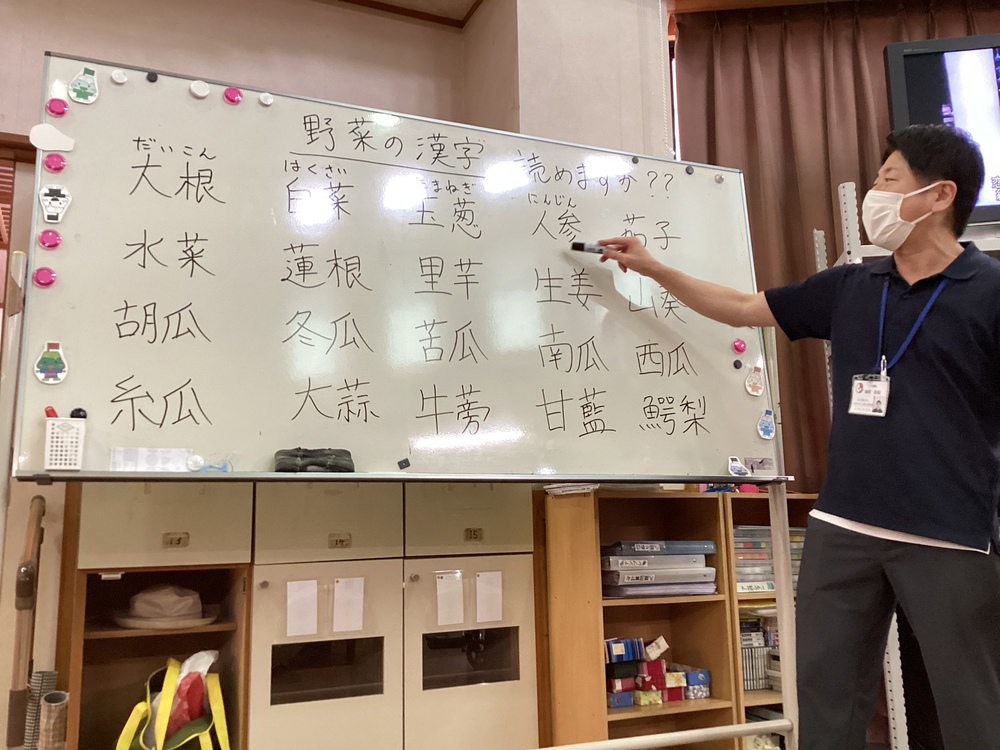 野菜の漢字 読めますか??
だいこん はくさい たまねぎ にんじん
大根 白菜 玉葱 人参 茄子
水菜 蓮根 里芋 生姜 山葵
胡瓜 冬瓜 苦瓜 南瓜 西瓜
糸瓜 大蒜 牛蒡 甘藍 鰐梨
13 14 15